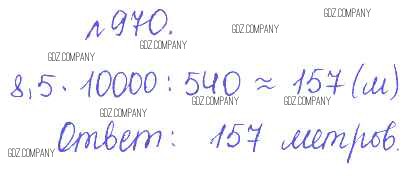 №970.
8,5 · 10000 : 540 ≈ 157 (м)
Ответ: 157 метров.
GDZ.COMPANY
GDZ.COMPANY
GDZ.COMPANY
GDZ.COMPANY
GDZ.COMPANY
GDZ.COMPANY
GDZ.COMPANY
GDZ.COMPANY